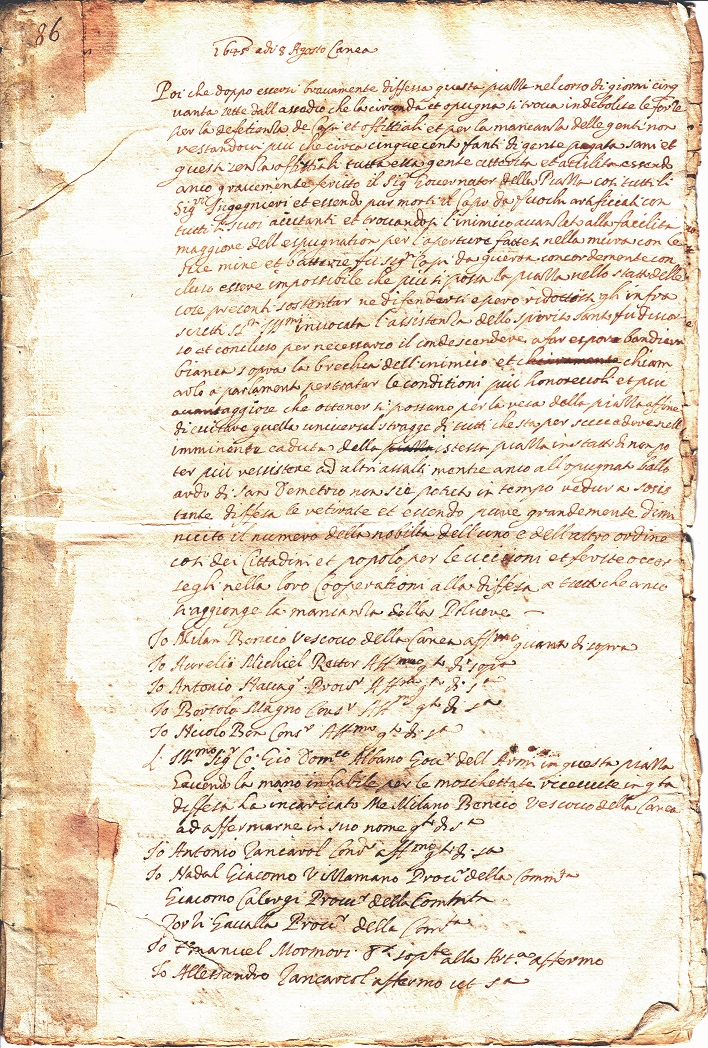 86
1645 adi 8 Agosto Canea
Poi che doppo essersi bravamente diffesa questa piazza nel corso di giorni cinq
vanta sette dall assedio che la circonda et opugna si trova indebolita le forze
per la defetienza de Capi et offitiali et per la mancanza delle genti non
restandovi più che circa cinque cent fanti di gente pagata sani et
questi senza offitiali tutta essa gente et avilita essendo
anco gravemente feritto il Sigr Governator della Piazza con tutti li
Sigri Ingegnieri et essendo pur morti il Capo da fuochi artificiati con
tutti li suoi aiutanti et trovandosi l'inimico avanzato alla facilità
maggiore dell espugnation per l'aperture fatte nella mura con le
sue mine et batterie fu sigri Capi da guerra concordemente con
cluso essere impossibile che più si possa la piazza nello stato delle
cose presenti sostentar ne difendersi e pero ridottisi gli infra
scritti invocata l'assistenza dello spirito santo fu discor
so et concluso per necessario il condescendere a far espore bandiera
bianca sopra la brechia dell'inimico et chiam
arlo a parlament per tratar le conditioni più honorevoli et piu
avantaggiose che ottener si possano per la resa della piazza affine
di evitare quella universal stragge di tutti che sta per succedere nell
imminente caduta della istessa piazza in stato di non po
ter più ressistere ad altri assalti mentre anco all'opugnato balo
ardo di San Demetrio non si è potuto in tempo redur a sosis
tente diffesa le retirate et essendo pure grandemente dimi
nuito il numero della nobiltà dell'uno e dell'altro ordine
così dei Cittadini et popolo per le uccisioni et ferite occor
segli nella loro Cooperatione alla diffesa a tutto che anco
si aggionge la mancanza della Polvere
Io Milan Bencio Vescovo della Canea affmo quanto di sopra
Io Aurelio Michiel Rettor Affmo qto di sopra
Io Antonio Provr Affmo qto di sa
Io Bortolo Magno Consr Affmo qto di sa
Io Nicolo Bon Consr Affmo qto di sa
L' Illmo Sigr Co Gio Domco Albano Govr dell Armi in questa piazza
havendo la mano inhabile per le moschettate ricevute in qta
diffesa ha incaricato Me Milano Bencio Vescovo della Canea
ad affermarne in suo nome qto di sa
Io Antonio Zancarol Consr affmo qto di sa
Io Nadal Giacomo Provr della Commta
Giacomo Calergi Provr della Commta
Zorzi Gavalla Provr della Comta
Io Emanuel Mormori alla affermo
Io Allessandro Zancarol affermo ut sa